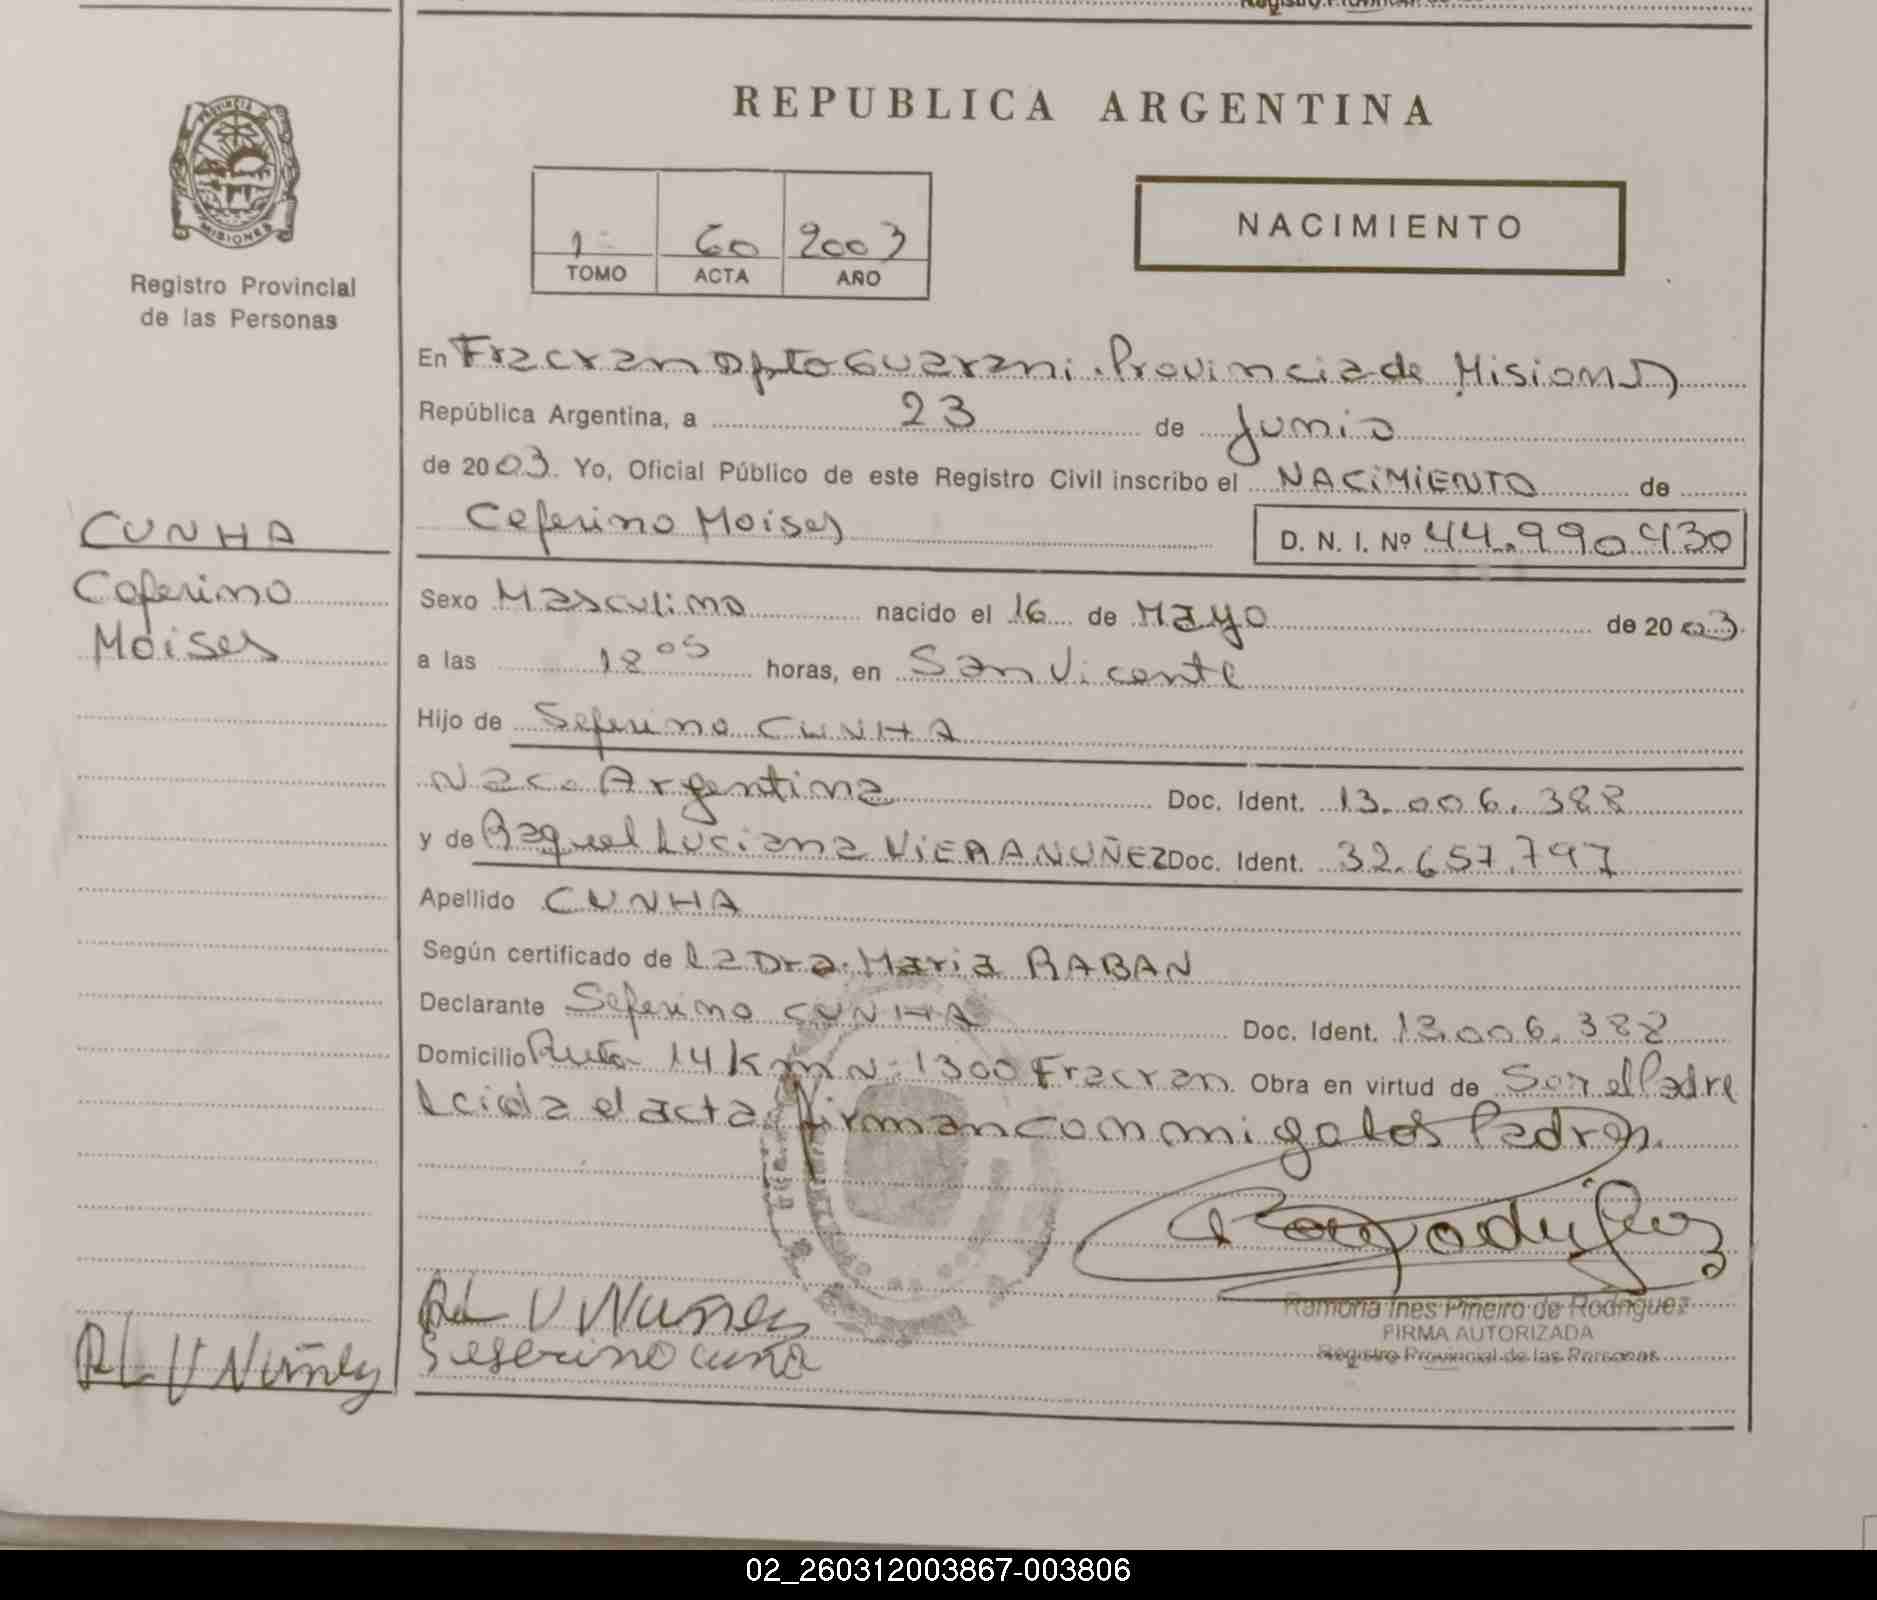 REPUBLICA ARGENTINA
PROVINCIA
MISIONES
Registro Provincial
de las Personas
1 60 2003
TOMO ACTA AÑO
NACIMIENTO
En Fracran Dpto Guarani. Provincia de Misiones
República Argentina, a 23 de Junio
de 2003. Yo, Oficial Público de este Registro Civil inscribo el NACIMIENTO de
Ceferino Moises D. N. I. Nº 44.990.430
CUNHA
Ceferino
Moises
Sexo Masculino nacido el 16 de Mayo de 2003
a las 18 05 horas, en San Vicente
Hijo de Seferino CUNHA
Nac. Argentina Doc. Ident. 13.006.388
y de Raquel Luciana VIERA NUÑEZ Doc. Ident. 32.657.797
Apellido CUNHA
Según certificado de la Dra. Maria RABAN
Declarante Seferino CUNHA Doc. Ident. 13.006.388
Domicilio Ruta 14 Km N: 1300 Fracran. Obra en virtud de Ser el Padre
Leida el acta firman conmigo los Padres.
Ramona Ines Piñeiro de Rodriguez
FIRMA AUTORIZADA
Registro Provincial de las Personas
RL V Nuñez
Seferino cuña
RL V Nuñez
02_260312003867-003806